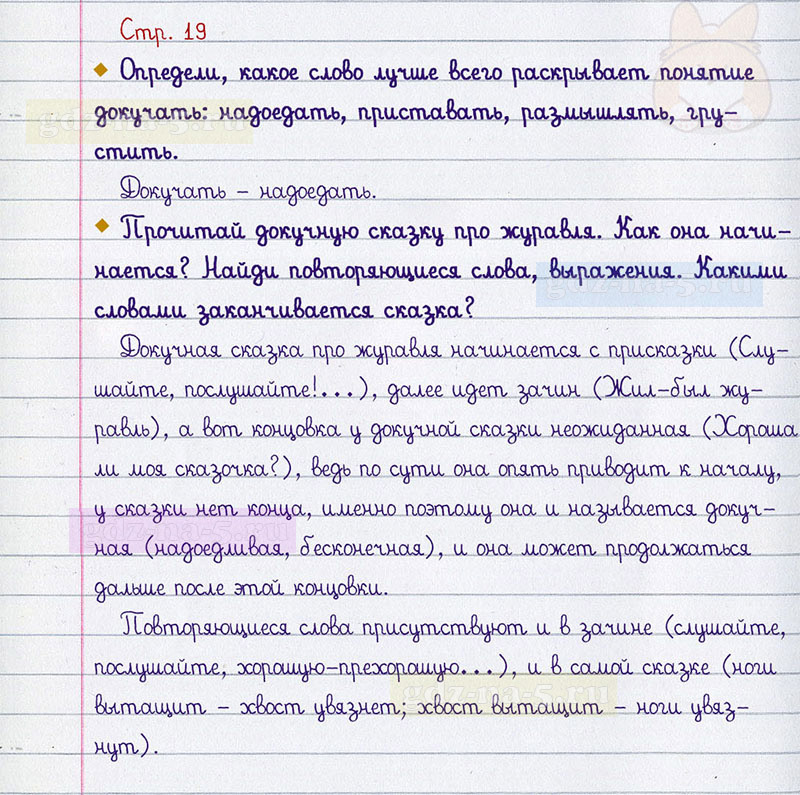 Стр. 19
Определи, какое слово лучше всего раскрывает понятие
докучать: надоедать, приставать, размышлять, гру-
стить.
Докучать – надоедать.
Прочитай докучную сказку про журавля. Как она начи-
нается? Найди повторяющиеся слова, выражения. Какими
словами заканчивается сказка?
Докучная сказка про журавля начинается с присказки (Слу-
шайте, послушайте!...), далее идет зачин (Жил-был жу-
равль), а вот концовка у докучной сказки неожиданная (Хороша
ли моя сказочка?), ведь по сути она опять приводит к началу,
у сказки нет конца, именно поэтому она и называется докуч-
ная (надоедливая, бесконечная), и она может продолжаться
дальше после этой концовки.
Повторяющиеся слова присутствуют и в зачине (слушайте,
послушайте, хорошую-прехорошую...), и в самой сказке (ноги
вытащит – хвост увязнет; хвост вытащит – ноги увяз-
нут).
gdz-na-5.ru
gdz-na-5.ru
gdz-na-5.ru
gdz-na-5.ru